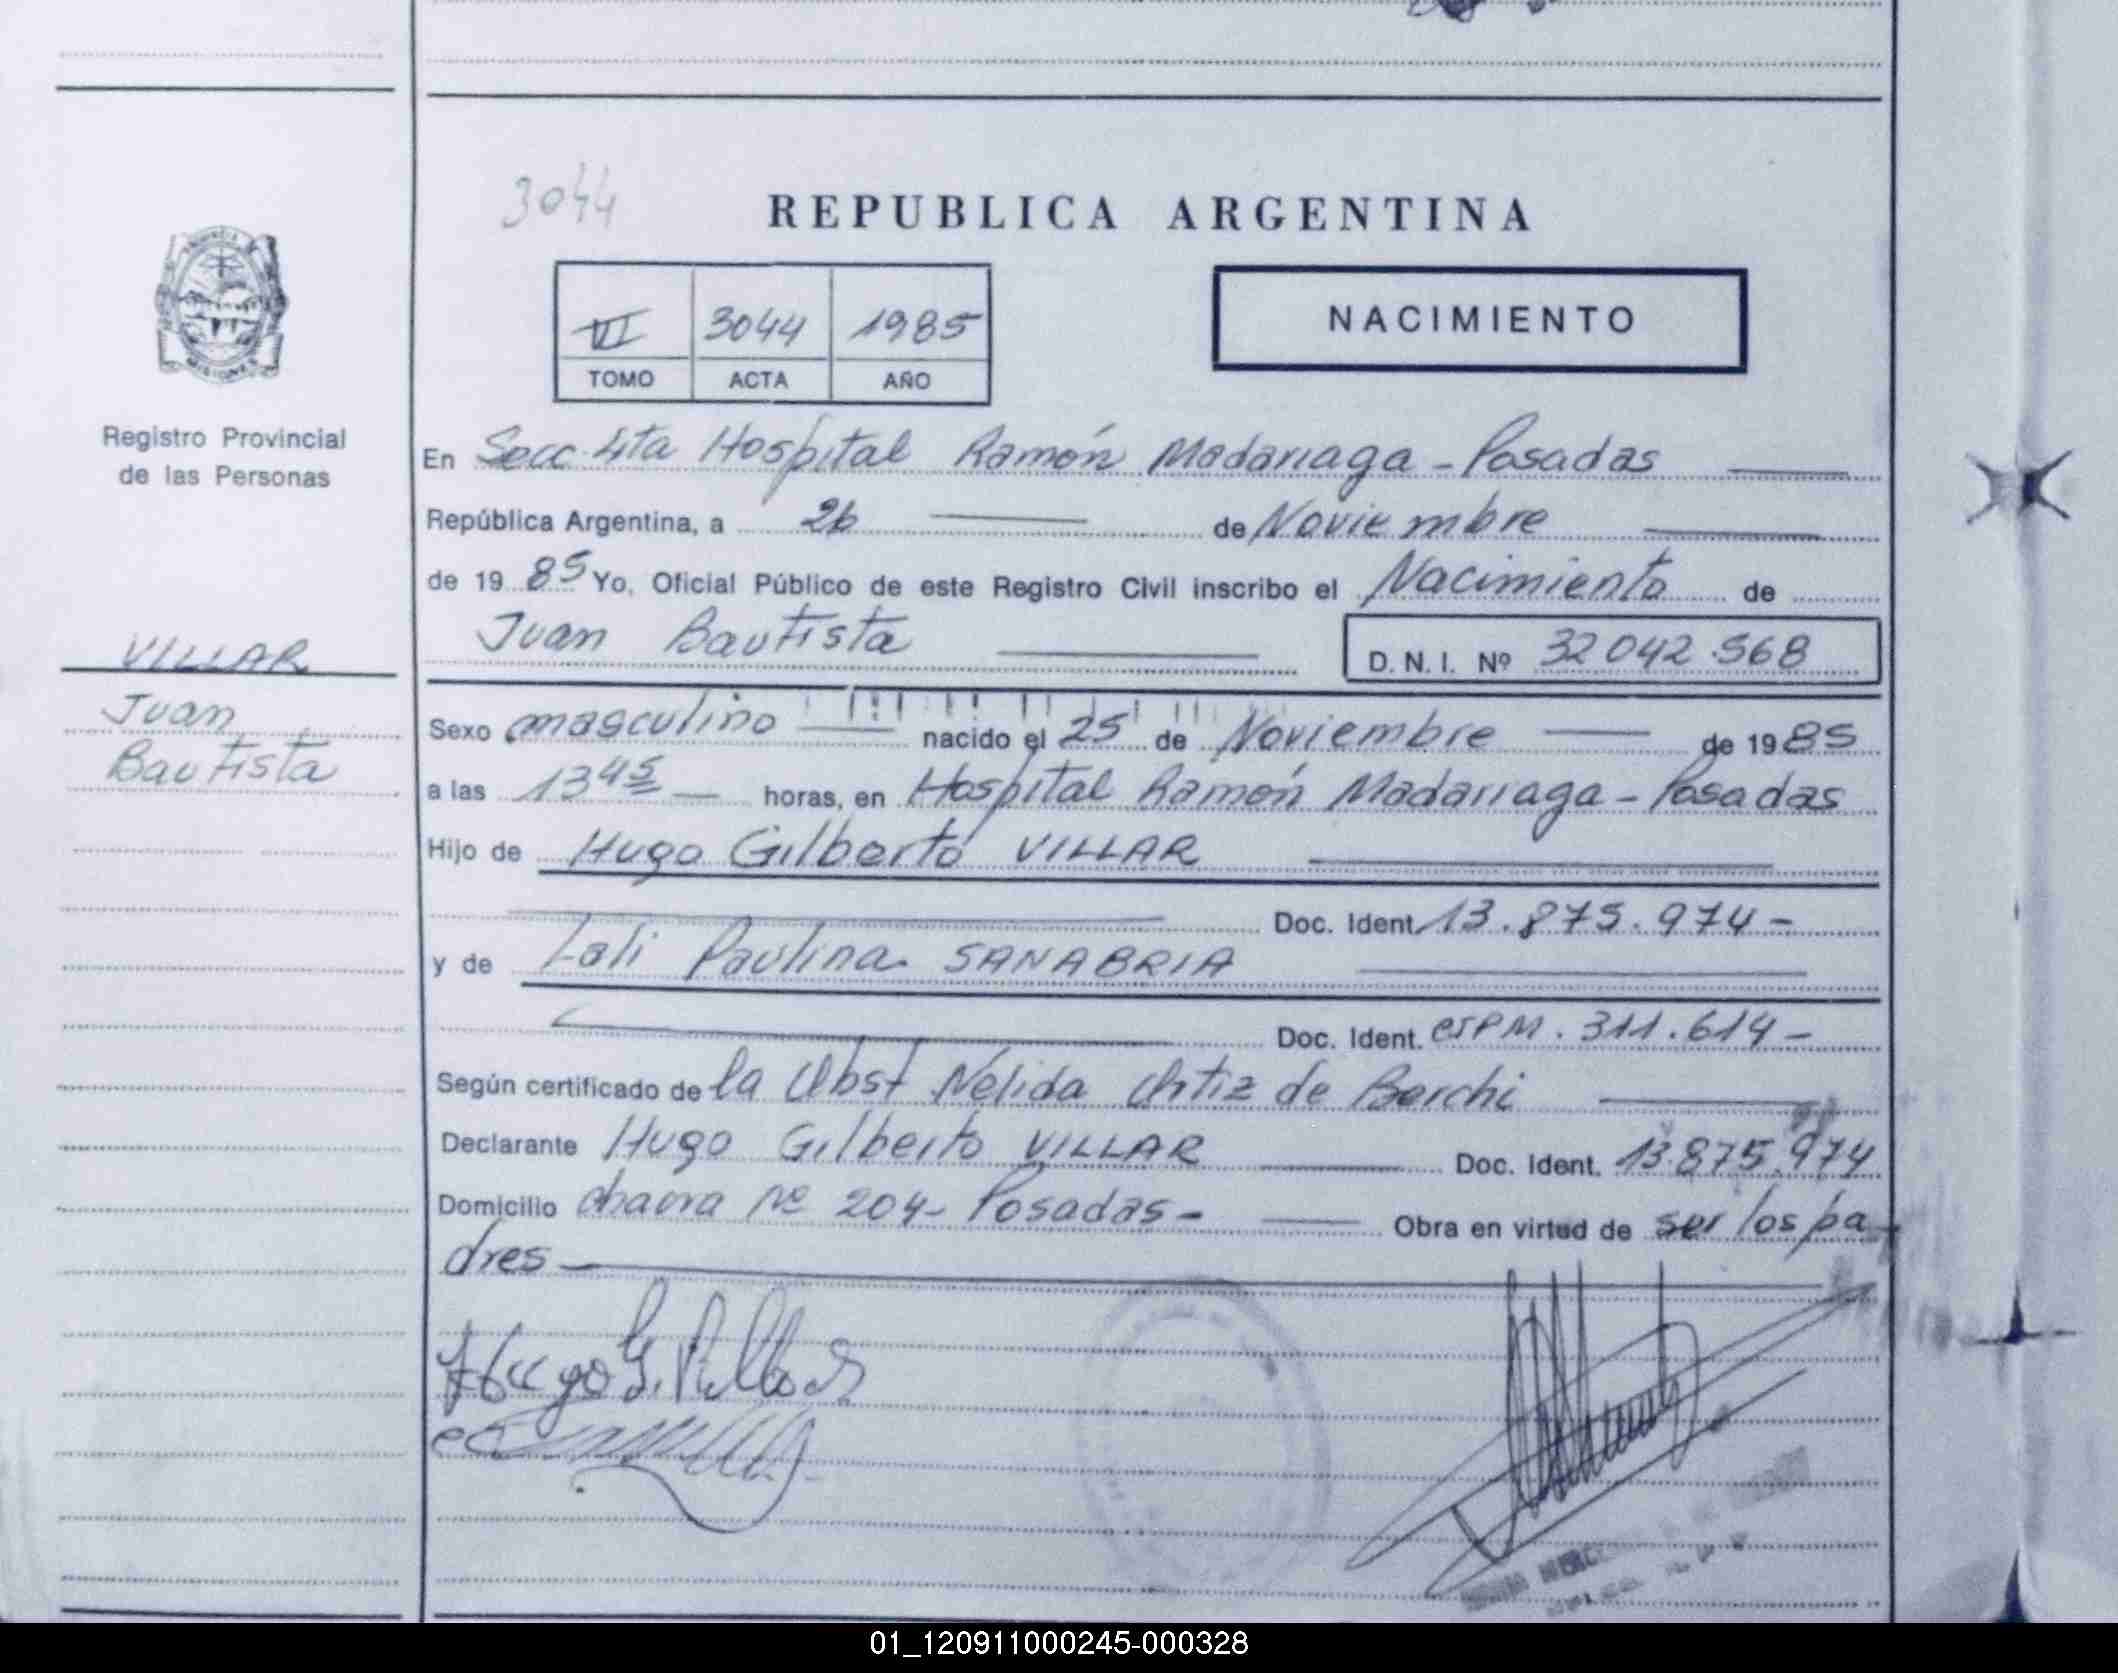 3044
REPUBLICA ARGENTINA
VI 3044 1985
TOMO ACTA AÑO
NACIMIENTO
PROVINCIA DE
MISIONES
Registro Provincial
de las Personas
VILLAR
Juan
Bautista
En Secc. 4ta Hospital Ramón Madariaga - Posadas
República Argentina, a 26 de Noviembre
de 1985 Yo, Oficial Público de este Registro Civil inscribo el Nacimiento de
Juan Bautista D. N. I. Nº 32 042.568
Sexo masculino nacido el 25 de Noviembre de 1985
a las 13 45 horas, en Hospital Ramón Madariaga - Posadas
Hijo de Hugo Gilberto VILLAR
Doc. Ident. 13.875.974 -
y de Lali Paulina SANABRIA
Doc. Ident. CIPM. 311.614 -
Según certificado de la Obst Nélida Ortiz de Borchi
Declarante Hugo Gilberto VILLAR Doc. Ident. 13.875.974
Domicilio chacra Nº 204 - Posadas - Obra en virtud de ser los pa
dres
Hugo G.
01_120911000245-000328